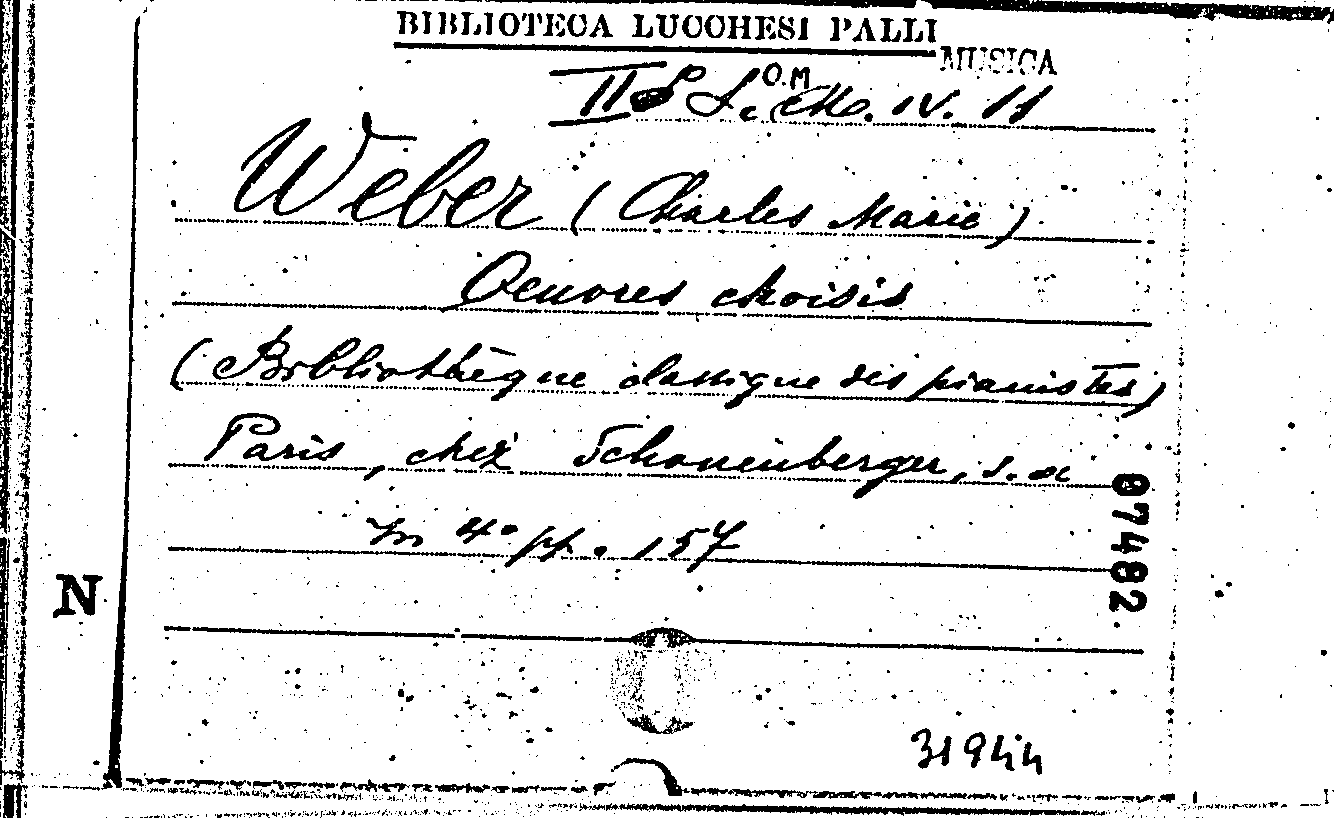 BIBLIOTECA LUCCHESI PALLI
MUSICA
O.M
II S. M. IV. 11
Weber (Charles Marie)
Oeuvres choisis
(Bibliothèque classique des pianistes)
Paris, chez Schonenberger, s. a
in 4° pp. 157
87482
N
31944